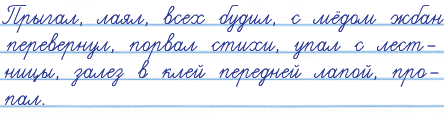 Прыгал, лаял, всех будил, с мёдом жбан
перевернул, порвал стихи, упал с лест-
ницы, залез в клей передней лапой, про-
пал.